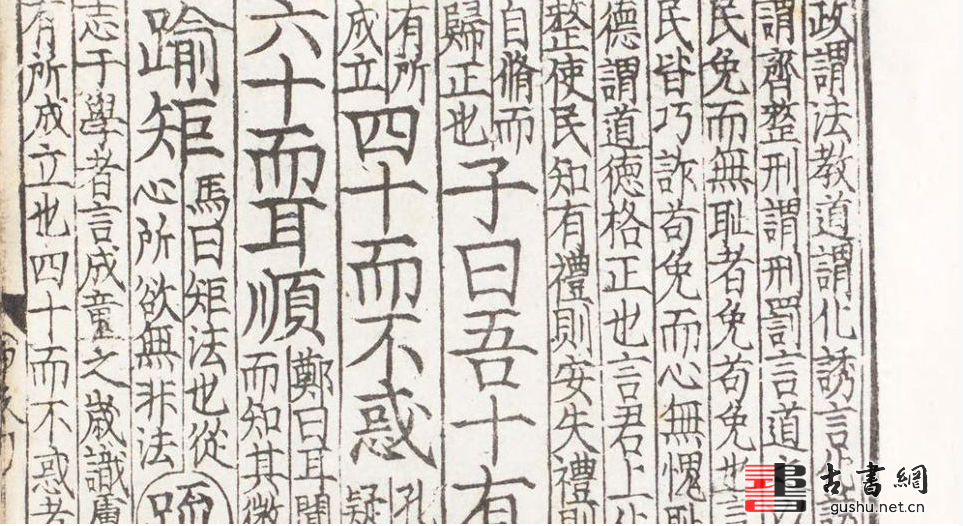 政謂法教道謂化誘言
謂齊整刑謂刑罰言道
民免而無耻者免苟免也言
民皆巧詐苟免而心無愧耻
德謂道德格正也言君上
整使民知有禮則安失禮則
自脩而
歸正也
子曰吾十有
有所
成立
四十而不惑
孔
疑
六十而耳順
鄭曰耳聞
而知其微
踰矩
馬曰矩法也從
心所欲無非法
疏
志于學者言成童之歲識慮
有所成立也四十而不惑者
古書網
gushu.net.cn